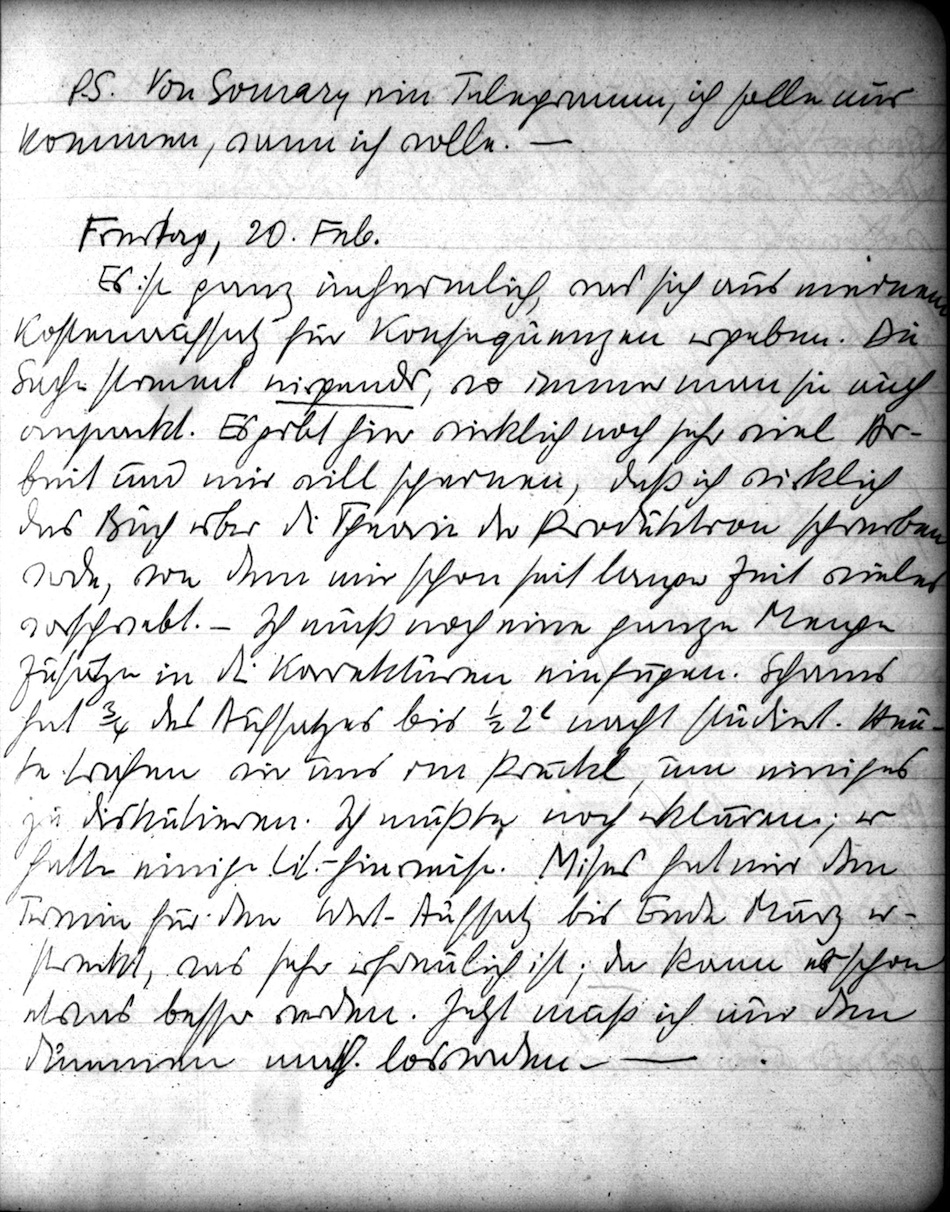 P.S. Von Somary ein Telegramm, ich solle nur
kommen, wann ich wolle. —
Freitag, 20. Feb.
Es ist ganz ungeheuerlich, was sich aus meinem
Kostenaufsatz für Konsequenzen ergeben. Die
Sache stimmt nirgends, wo immer man sie auch
anpackt. Es gibt hier wirklich noch sehr viel Ar-
beit und mir will scheinen, daß ich wirklich
das Buch über die Theorie der Produktion schreiben
werde, von dem mir schon seit langer Zeit vieles
vorschwebt. – Ich muß noch eine ganze Menge
Zusätze in die Korrekturen einfügen. Schams
hat ¾ des Aufsatzes bis ½ 2h nacht studiert. Heu-
te trafen wir uns im Prückl, um einiges
zu diskutieren. Ich mußte noch erklären; er
hatte einige Lit.-hinweise. Mises hat mir den
Termin für den Wert-Aufsatz bis Ende März er-
streckt, was sehr erfreulich ist; da kann er schon
etwas besser werden. Jetzt muß ich nur den
dummen loswerden. —